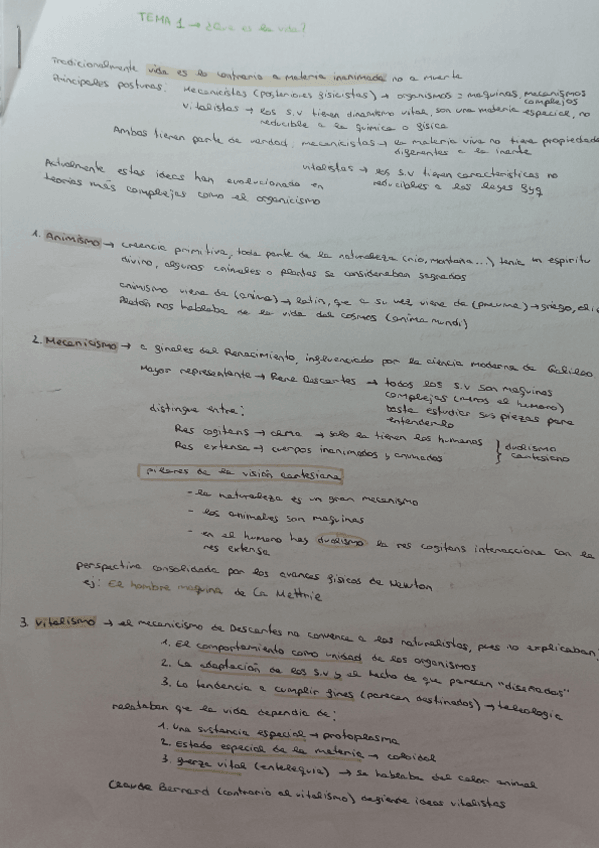 TEMA 1 → ¿Que es la vida?
Tradicionalmente vida es lo contrario a materia inanimada no a muerte
Principales posturas: Mecanicistas (posteriores fisicistas) → organismos = maquinas, mecanismos complejos
vitalistas → los s.v tienen dinamismo vital, son una materia especial, no reducible a la quimica o fisica
Ambas tienen parte de verdad, mecanicistas → la materia viva no tiene propiedades diferentes a la inerte
vitalistas → los s.v tienen caracteristicas no reducibles a las leyes FyQ
Actualmente estas ideas han evolucionado en teorias más complejas como el organicismo
1. Animismo → creencia primitiva, toda parte de la naturaleza (rio, montaña...), tenia un espiritu divino, algunos animales o plantas se consideraban sagrados
animismo viene de (anima) → latin, que a su vez viene de (pneuma) → griego,
Platón nos hablaba de la vida del cosmos (anima mundi)
2. Mecanicismo → a finales del Renacimiento, influenciado por la ciencia moderna de Galileo
Mayor representante → Rene Descartes → todos los s.v son maquinas complejas (menos el humano)
basta estudiar sus piezas para entenderlo
distingue entre:
Res cogitans → alma → solo la tienen los humanos
Res extensa → cuerpos inanimados y animados
dualismo cartesiano
pilares de la visión cartesiana
- la naturaleza es un gran mecanismo
- los animales son maquinas
- en el humano hay dualismo la res cogitans interacciona con la res extensa
perspectiva consolidada por los avances fisicos de Newton
ej: El hombre maquina de La Mettrie
3. Vitalismo → el mecanicismo de Descartes no convence a los naturalistas, pues no explicaban:
1. El comportamiento como unidad de los organismos
2. La adaptación de los s.v y el hecho de que parecen "diseñados"
3. La tendencia a cumplir fines (parecen destinados) → teleologia
relataban que la vida dependia de:
1. Una sustancia especial → protoplasma
2. Estado especial de la materia → coloidal
3. fuerza vital (entelequia) → se hablaba del calor animal
Claude Bernard (contrario al vitalismo) defiende ideas vitalistas